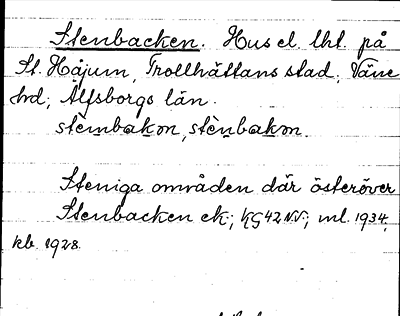 Stenbacken. Hus el. lht. på
St. Håjum, Trollhättans stad, Väne
hd; Älfsborgs län.
stèmbakon, stènbakon.
Steniga områden där österöver
Stenbacken ek; KG42NV; ml. 1934,
kb. 1928.